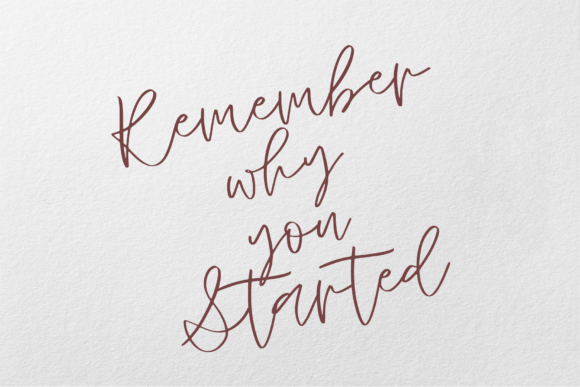 Remember
why
you
Started